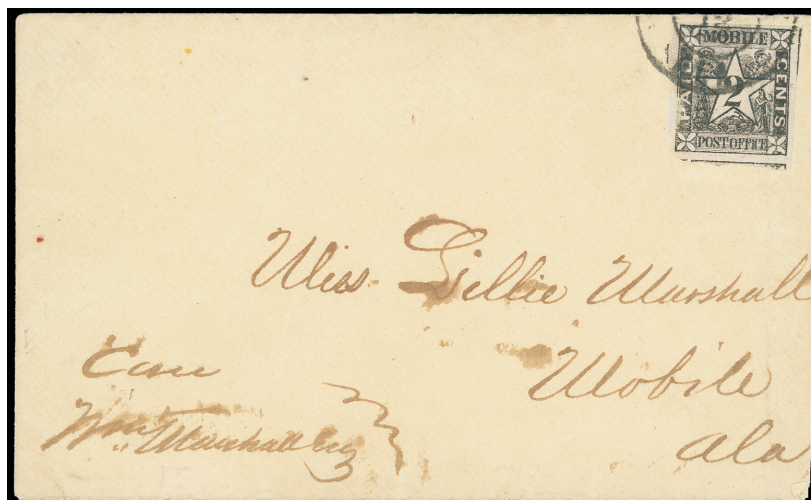 MOBILE
PAID 2 CENTS
POST OFFICE
Miss Lillie Marshall
Mobile
Ala
Care
Wm Marshall Esq